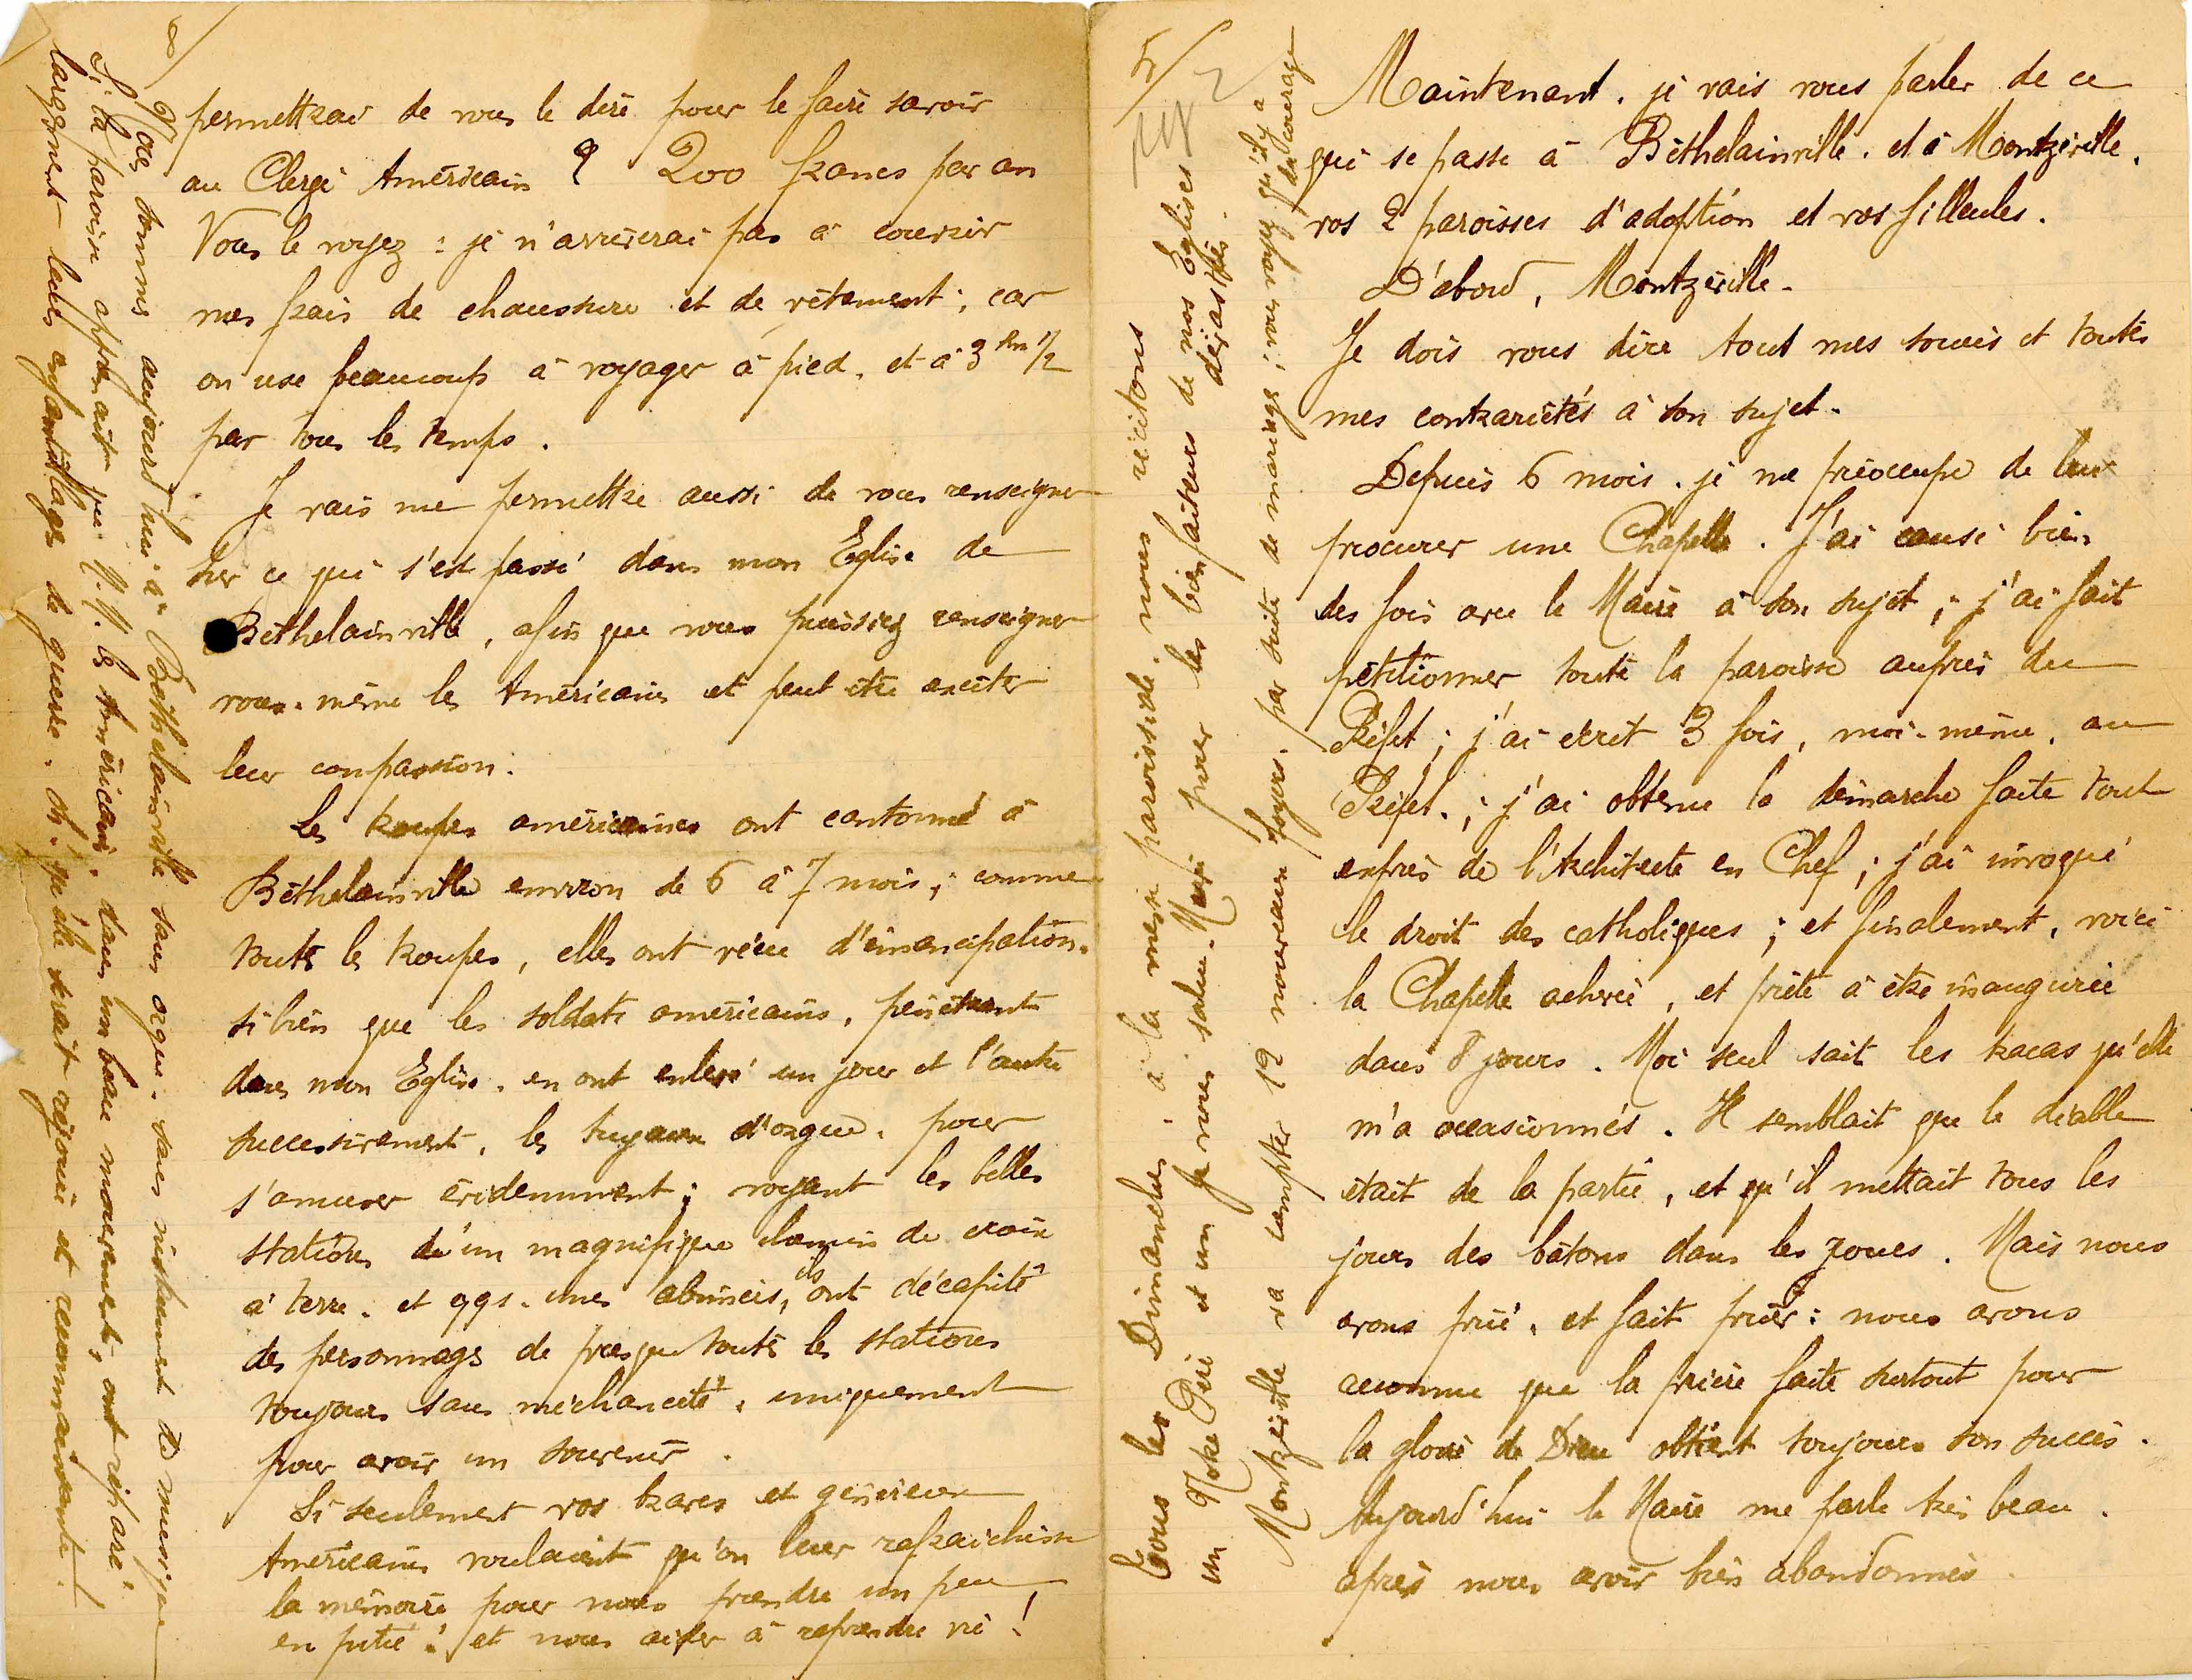 8/
permettrai de vous le dire pour le faire savoir
au Clergé Américain ? 200 francs par an
Vous le voyez : je n'arriverai pas à couvrir
mes frais de chaussure et de vêtement ; car
on use beaucoup à voyager à pied, et à 3 km 1/2
par tous les temps.
Je vais me permettre aussi de vous renseigner
sur ce qui s'est passé dans mon Eglise de
Béthelainville, afin que vous puissiez renseigner
vous-même les Américains et peut être exciter
leur compassion.
Les troupes américaines ont cantonné à
Béthelainville environ de 6 à 7 mois ; comme
toutes les troupes, elles ont vécu d'émancipation,
si bien que les soldats américains, pénétrant
dans mon Eglise, en ont enlevé un jour et l'autre
successivement, les tuyaux d'orgue, pour
s'amuser évidemment ; voyant les belles
stations d'un magnifique chemin de croix
à terre, et qqs. unes abimées, ils ont décapité
des personnages de presque toutes les stations
toujours sans méchanceté, uniquement
pour avoir un souvenir.
Si seulement vos braves et généreux
Américains voulaient qu'on leur rafraichisse
la mémoire pour nous prendre un peu
en pitié : et nous aider à reprendre vie !
Nous sommes aujourd'hui à Béthelainville sans orgue, sans instrument de musique
Si la paroisse apprenait que M.M. les Américains, dans un beau mouvement, ont réparé
largement leurs enfantillages de guerre, oh ! qu'elle serait réjouie et reconnaissante !
5/
Maintenant, je vais vous parler de ce
qui se passe à Béthelainville, et à Montzéville,
vos 2 paroisses d'adoption et vos filleules.
D'abord, Montzéville.
Je dois vous dire tout mes soucis et toutes
mes contrariétés à son sujet.
Depuis 6 mois, je me préoccupe de leur
procurer une Chapelle. J'ai causé bien
des fois avec le Maire à son sujet ; j'ai fait
pétitionner toute la paroisse auprès du
Préfet ; j'ai écrit 3 fois, moi-même, au
Préfet ; j'ai obtenu la démarche faite tout
exprès de l'Architecte en Chef ; j'ai invoqué
le droit des catholiques ; et finalement, voici
la Chapelle achevée, et prête à être inaugurée
dans 8 jours. Moi seul sait les tracas qu'elle
m'a occasionnés. Il semblait que le diable
était de la partie, et qu'il mettait tous les
jours des bâtons dans les roues. Mais nous
avons prié, et fait prier : nous avons
reconnu que la prière faite surtout pour
la gloire de Dieu obtient toujours son succès.
Aujourd'hui le Maire me parle très beau,
après nous avoir bien abandonnés.
Tous les Dimanches, à la messe paroissiale, nous récitons
un Notre Père et un Je vous salue Marie pour les bienfaiteurs de nos Eglises
dévastées.
Montzéville va compter 19 nouveaux foyers, par suite de mariage ;
du courage